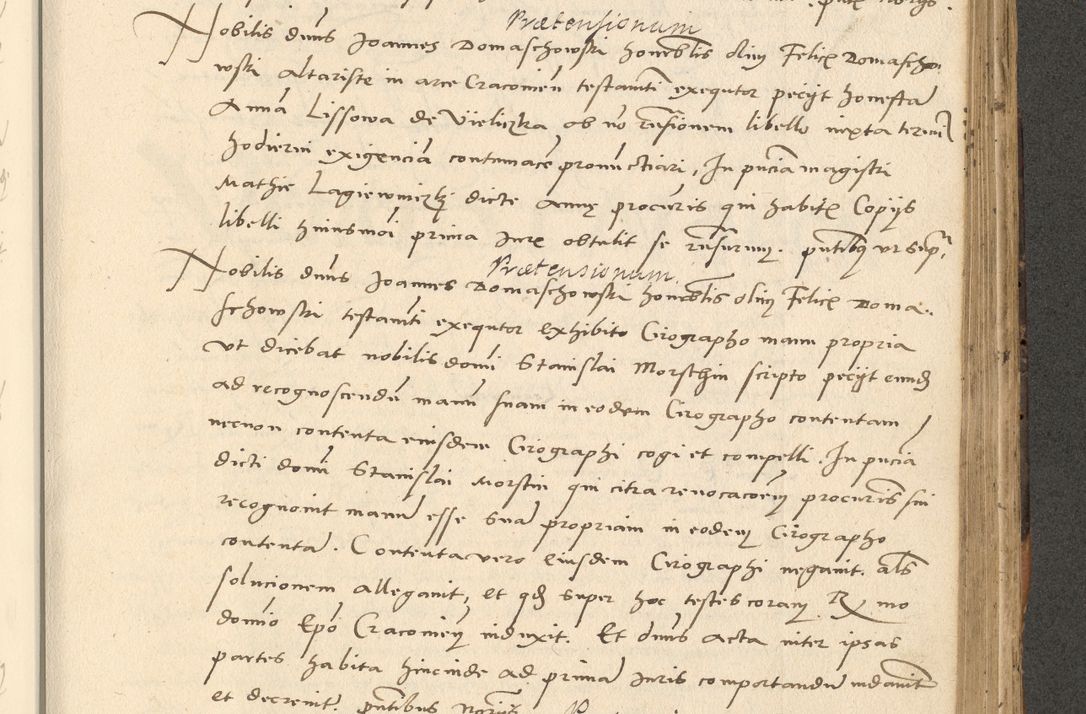 Prætensionum
Nobilis dnus Joannes Domaschowski honorablis olim Felicis Domascho
wski altariste in arce Cracovien testamti exequtor peciit honestã
Annã Lissowa de Vieliczka ob nõ rñsionem libello iuxta termĩ
hodierni exigenciã contumacẽ pronũctiari, In pñcia magistri
Mathie Lagiewniczki dicte Annę procuris qui habitis Copiis
libelli huiusmoi prima Jure obtulit se rñsurum. pñtibus ut supra
Prætensionum
Nobilis dnus Joannes Domaschowski honorablis olim Felicis Doma
schowski testamti exequtor exhibito Cirographo manu propria
ut dicebat nobilis domi Stanislai Morschin scripto peciit eundem
ad recognoscendũ manũ suam in eodem Cirographo contentam
necnon contenta eiusdem Cirographi cogi et compelli. In pñcia
dicti domi Stanislai Morstin qui citra revocacoẽm procuris sui
recognovit manũ esse suã propriam in eodem Cirographo
contentã. Contenta vero eiusdem Cirographi negavit. als
solucionem allegavit, et qd super hoc testes coram R mo
domio Epo Cracovien induxit. Et dnus acta inter ipsas
partes habita hincinde ad primã Juris comportandũ mdavit
et decrevit. pñtibus